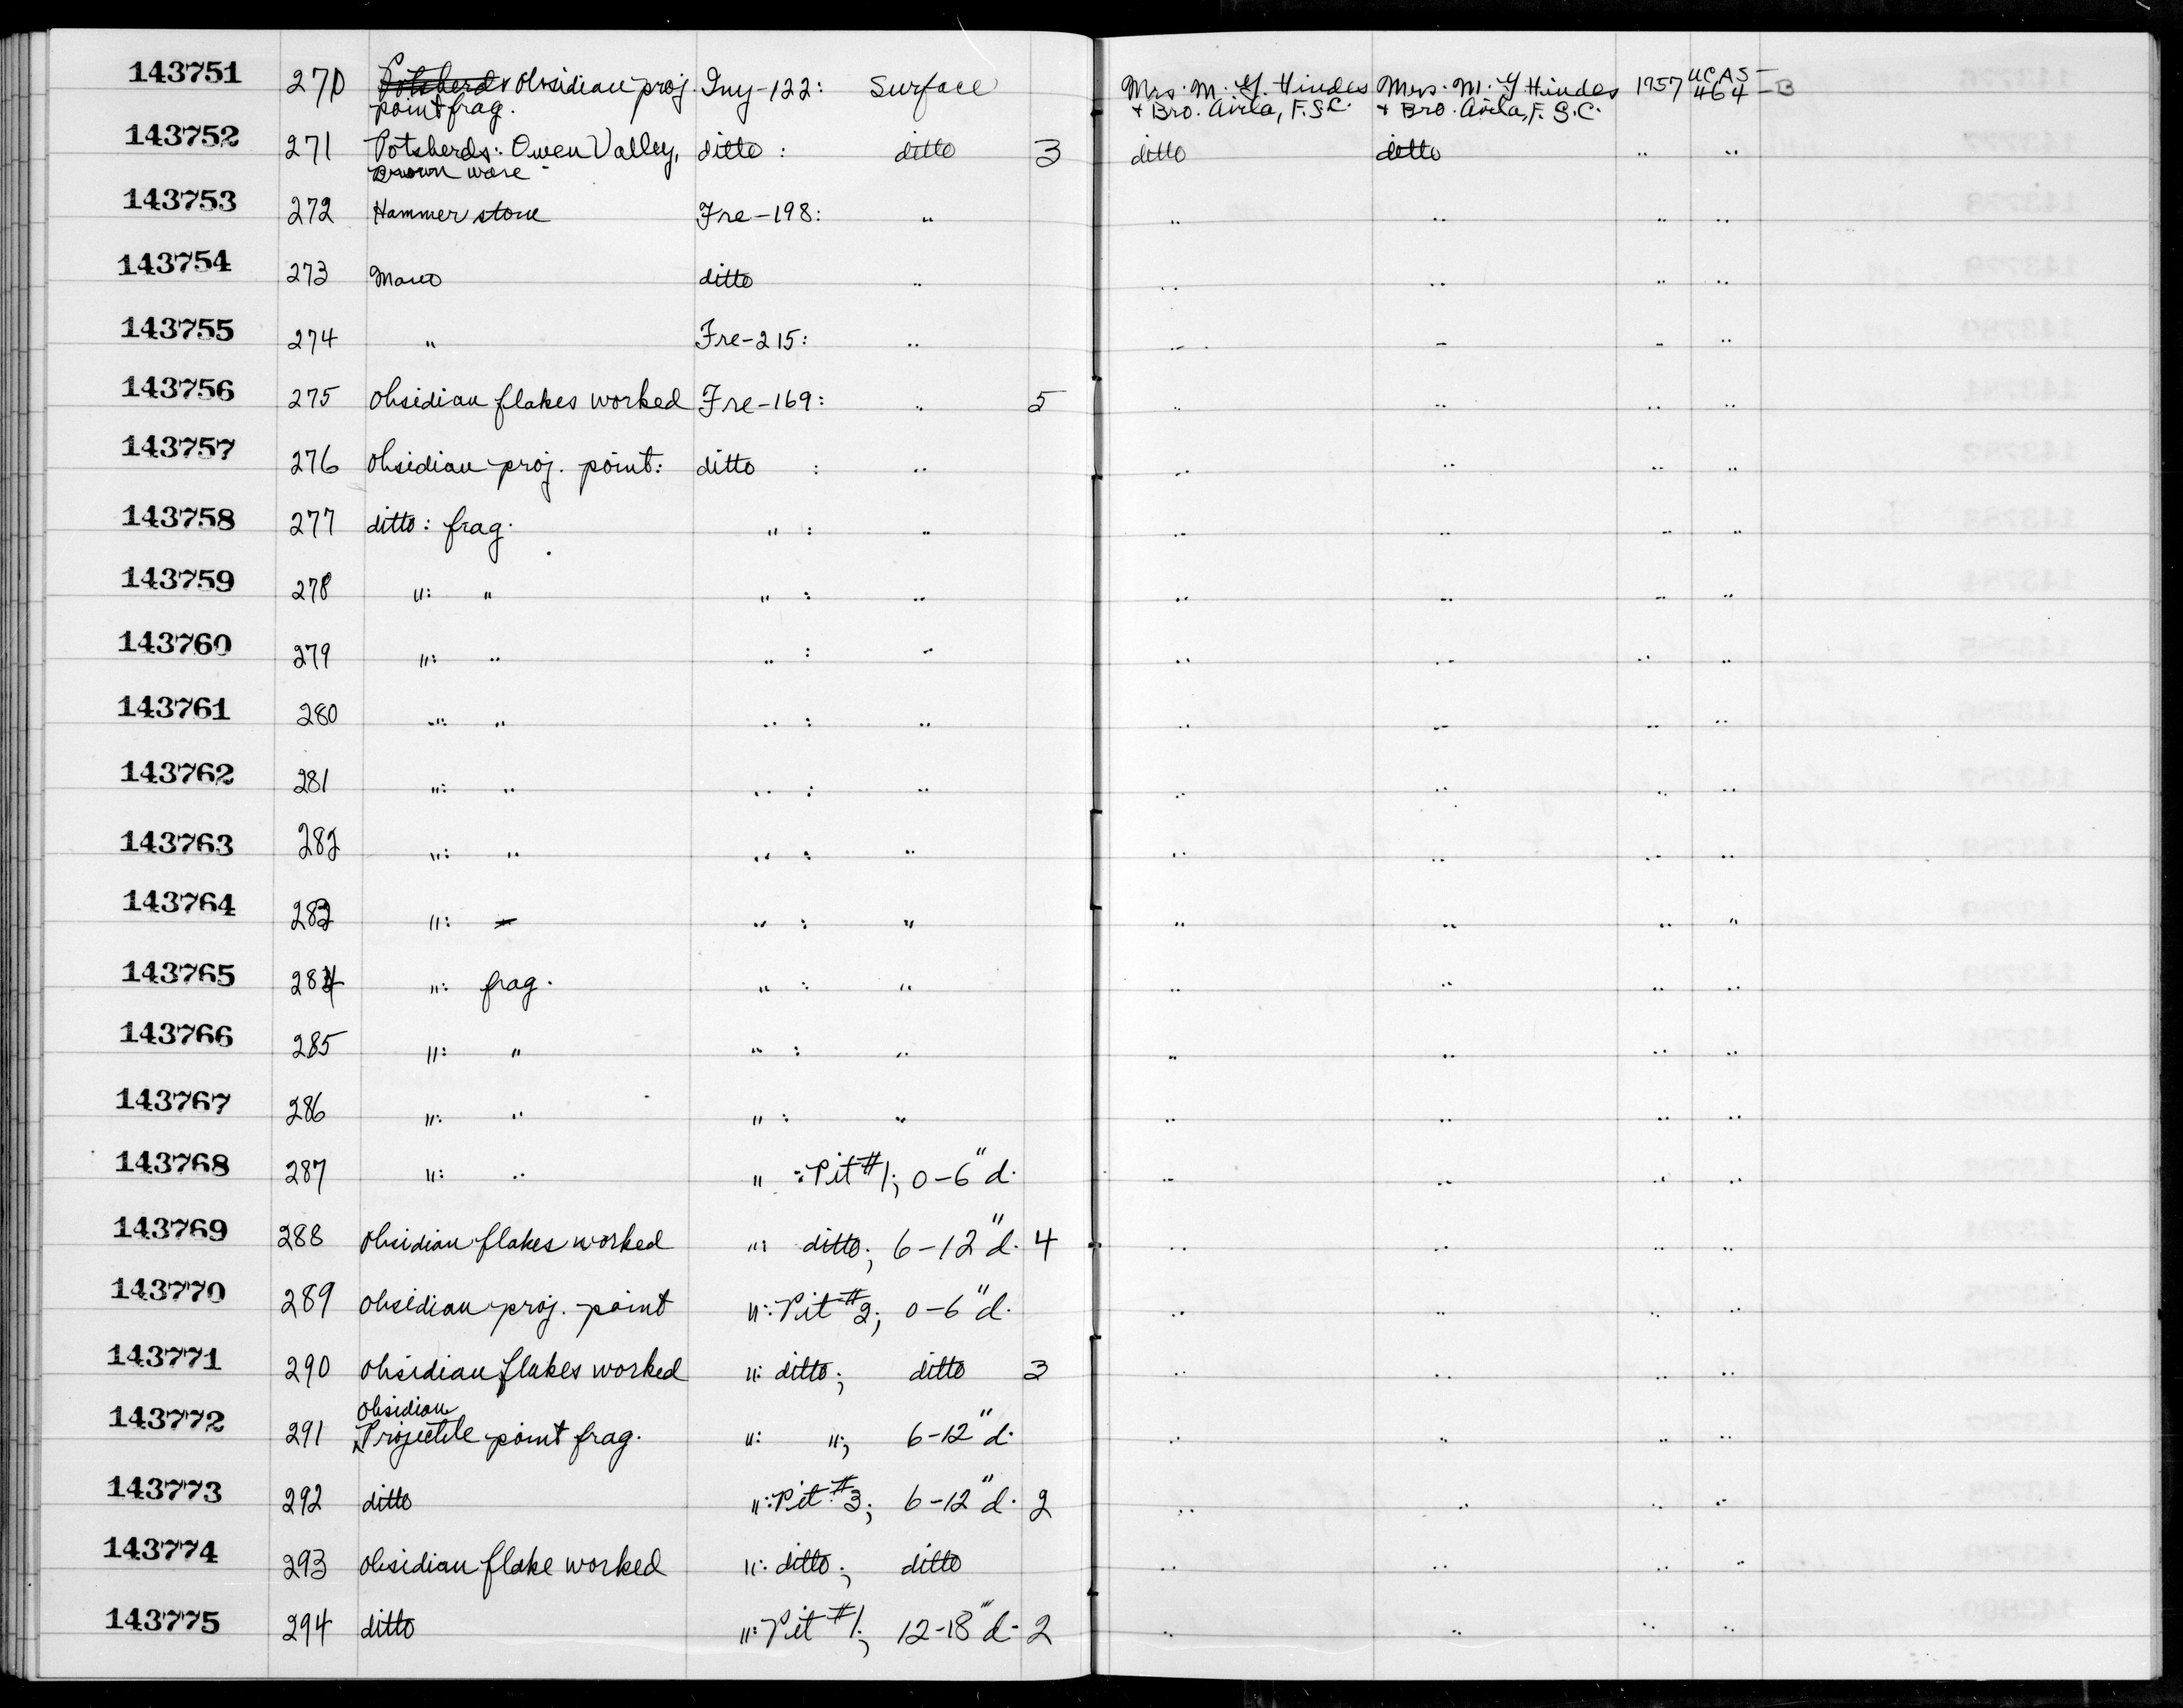 143751 270 Potsherds obsidian proj. Iny-122: Surface Mrs. M. Y. Hindes Mrs. M. Y Hindes 1957 UCAS-
point frag. + Bro. Avila, F.S.C. + Bro. Avila, F.S.C. 464 -B
143752 271 Potsherds: Owen Valley, ditto : ditto 3 ditto ditto " "
Brown ware
143753 272 Hammer stone Fre-198: " " " " "
143754 273 Mano ditto " " " " "
143755 274 " Fre-215: " " " " "
143756 275 obsidian flakes worked Fre-169: " 5 " " " "
143757 276 obsidian proj. point: ditto : " " " " "
143758 277 ditto: frag. " : " " " " "
143759 278 ": " " : " " " " "
143760 279 ": " " : " " " " "
143761 280 ": " " : " " " " "
143762 281 ": " " : " " " " "
143763 282 ": " " : " " " " "
143764 283 ": " : " " " " "
143765 284 ": frag. " : " " " " "
143766 285 ": " " : " " " " "
143767 286 ": " " : " " " " "
143768 287 ": " " : Pit #1; 0-6" d. " " " "
143769 288 obsidian flakes worked ": ditto; 6-12" d. 4 " " " "
143770 289 obsidian proj. point ": Pit #2; 0-6" d. " " " "
143771 290 obsidian flakes worked ": ditto; ditto 3 " " " "
obsidian
143772 291 Projectile point frag. ": "; 6-12" d. " " " "
143773 292 ditto ": Pit #3; 6-12" d. 2 " " " "
143774 293 obsidian flake worked ": ditto; ditto " " " "
143775 294 ditto ": Pit #1; 12-18" d. 2 " " " "